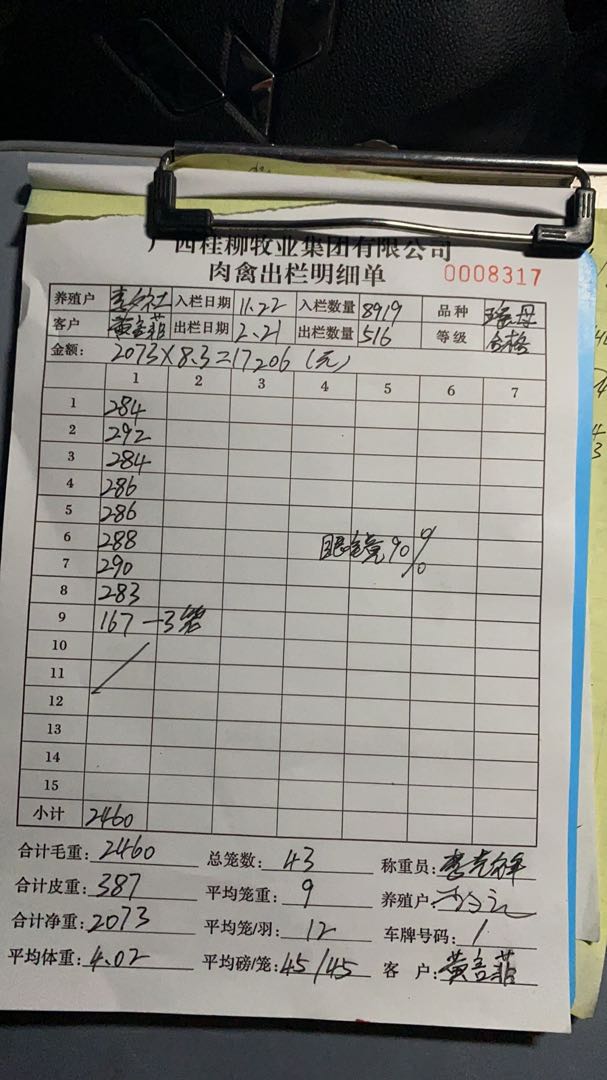 广西桂柳牧业集团有限公司
肉禽出栏明细单 0008317
养殖户 入栏日期 11.22 入栏数量 8919 品种
客户 黄言菲 出栏日期 2.21 出栏数量 516 等级 合格
金额: 2073×8.3=17206 (元)
1 2 3 4 5 6 7
1 284
2 292
3 284
4 286
5 286
6 288 眼镜90%
7 290
8 283
9 167-3笼
10
11
12
13
14
15
小计 2460
合计毛重: 2460 总笼数: 43 称重员:
合计皮重: 387 平均笼重: 9 养殖户
合计净重: 2073 平均笼/羽: 12 车牌号码: 1
平均体重: 4.02 平均磅/笼: 45/45 客 户: 黄言菲